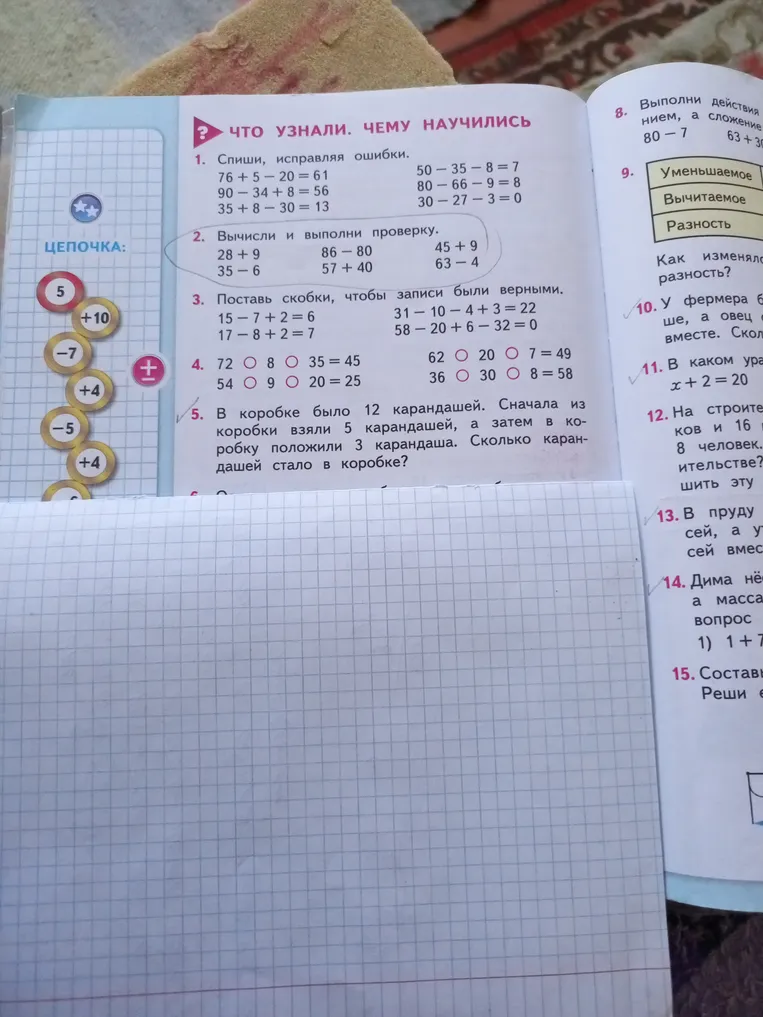 ? ЧТО УЗНАЛИ. ЧЕМУ НАУЧИЛИСЬ
1. Спиши, исправляя ошибки.
76 + 5 − 20 = 61 50 − 35 − 8 = 7
90 − 34 + 8 = 56 80 − 66 − 9 = 8
35 + 8 − 30 = 13 30 − 27 − 3 = 0
2. Вычисли и выполни проверку.
28 + 9 86 − 80 45 + 9
35 − 6 57 + 40 63 − 4
3. Поставь скобки, чтобы записи были верными.
15 − 7 + 2 = 6 31 − 10 − 4 + 3 = 22
17 − 8 + 2 = 7 58 − 20 + 6 − 32 = 0
4. 72 ○ 8 ○ 35 = 45 62 ○ 20 ○ 7 = 49
54 ○ 9 ○ 20 = 25 36 ○ 30 ○ 8 = 58
5. В коробке было 12 карандашей. Сначала из
коробки взяли 5 карандашей, а затем в ко-
робку положили 3 карандаша. Сколько каран-
дашей стало в коробке?
ЦЕПОЧКА:
5
+10
−7
+4
−5
+4
±
8. Выполни действия
нием, а сложение
80 − 7 63 + 30
9. Уменьшаемое
Вычитаемое
Разность
Как
разность?
10. У фермера
ше, а овец
вместе.
11. В каком
x + 2 = 20
12. На
ков и 16
8 человек.
шить эту
13. В пруду
сей, а
сей
14. Дима
а масса
вопрос
1) 1 + 7
15.
Реши